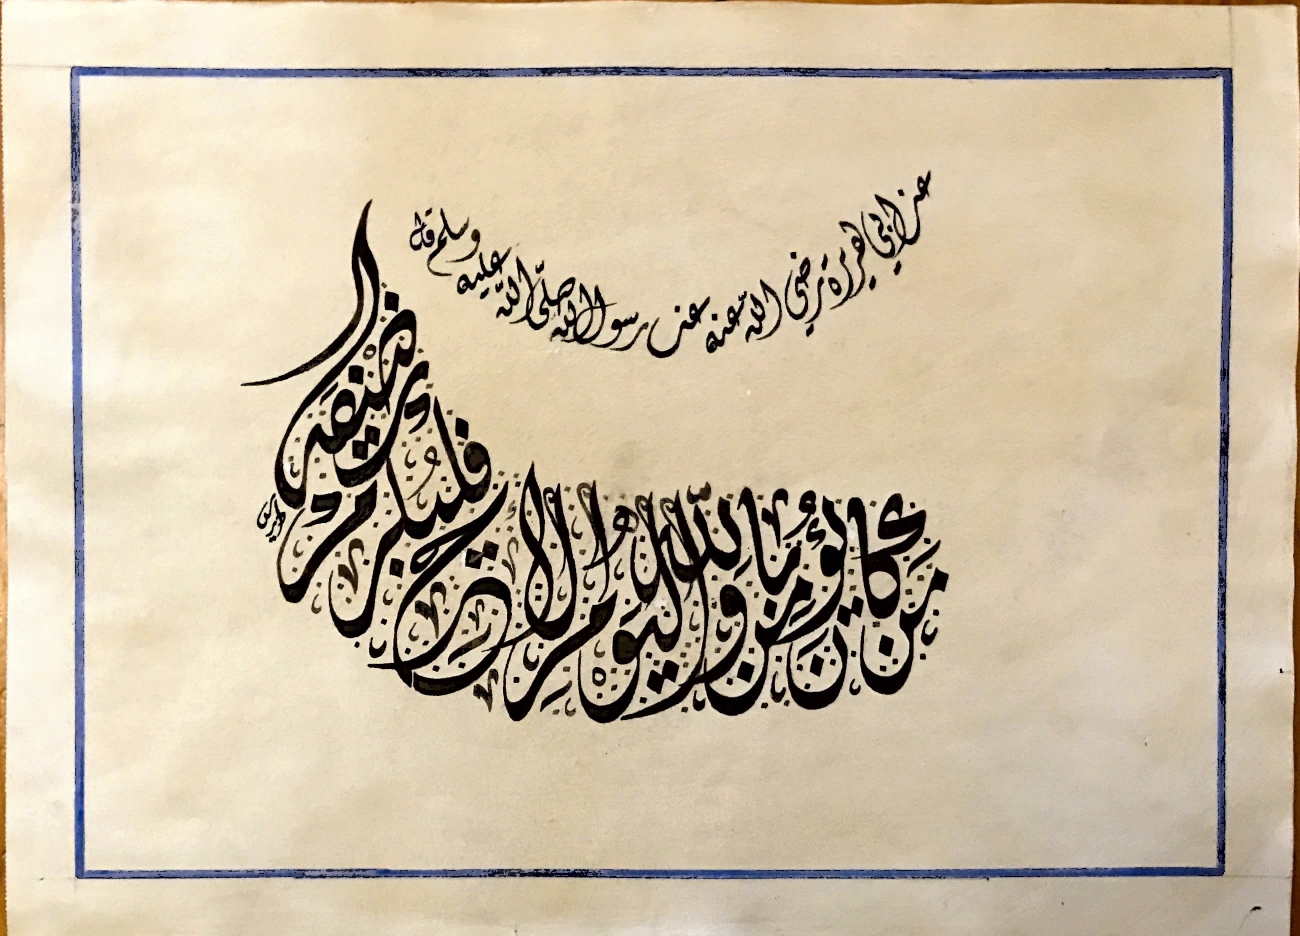 عن ابي هريرة رضي الله عنه عن رسول الله صلّى اللّه عليه وسلم قال
مَن كان يُؤمِن بِاللّٰه وَاليَومِ الاخِر فليُكرِم ضَيفَه